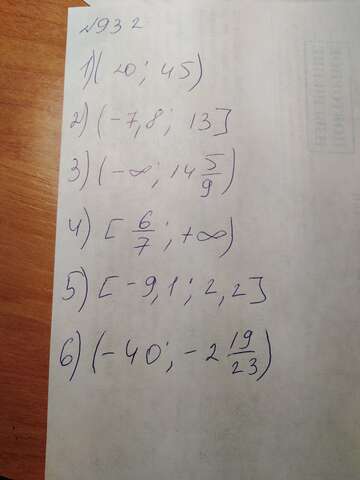 №932
1) (20; 45)
2) (-7,8; 13]
3) (-∞; 14 5/9)
4) [6/7; +∞)
5) [-9,1; 2,2]
6) (-40; -2 19/23)